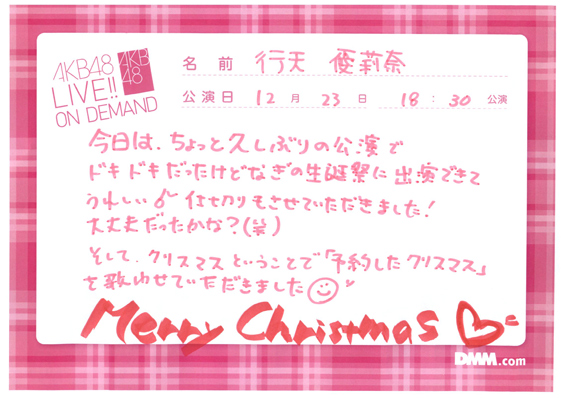 AKB48
LIVE!!
ON DEMAND
AKB
48
名前 行天 優莉奈
公演日 12月 23日 18:30 公演
今日は、ちょっと久しぶりの公演で
ドキドキだったけどなぎの生誕祭に出演できて
うれしい♪ 仕切りもさせていただきました！
大丈夫だったかな？(笑)
そして、クリスマスということで「予約したクリスマス」
を歌わせていただきました
Merry Christmas
DMM.com